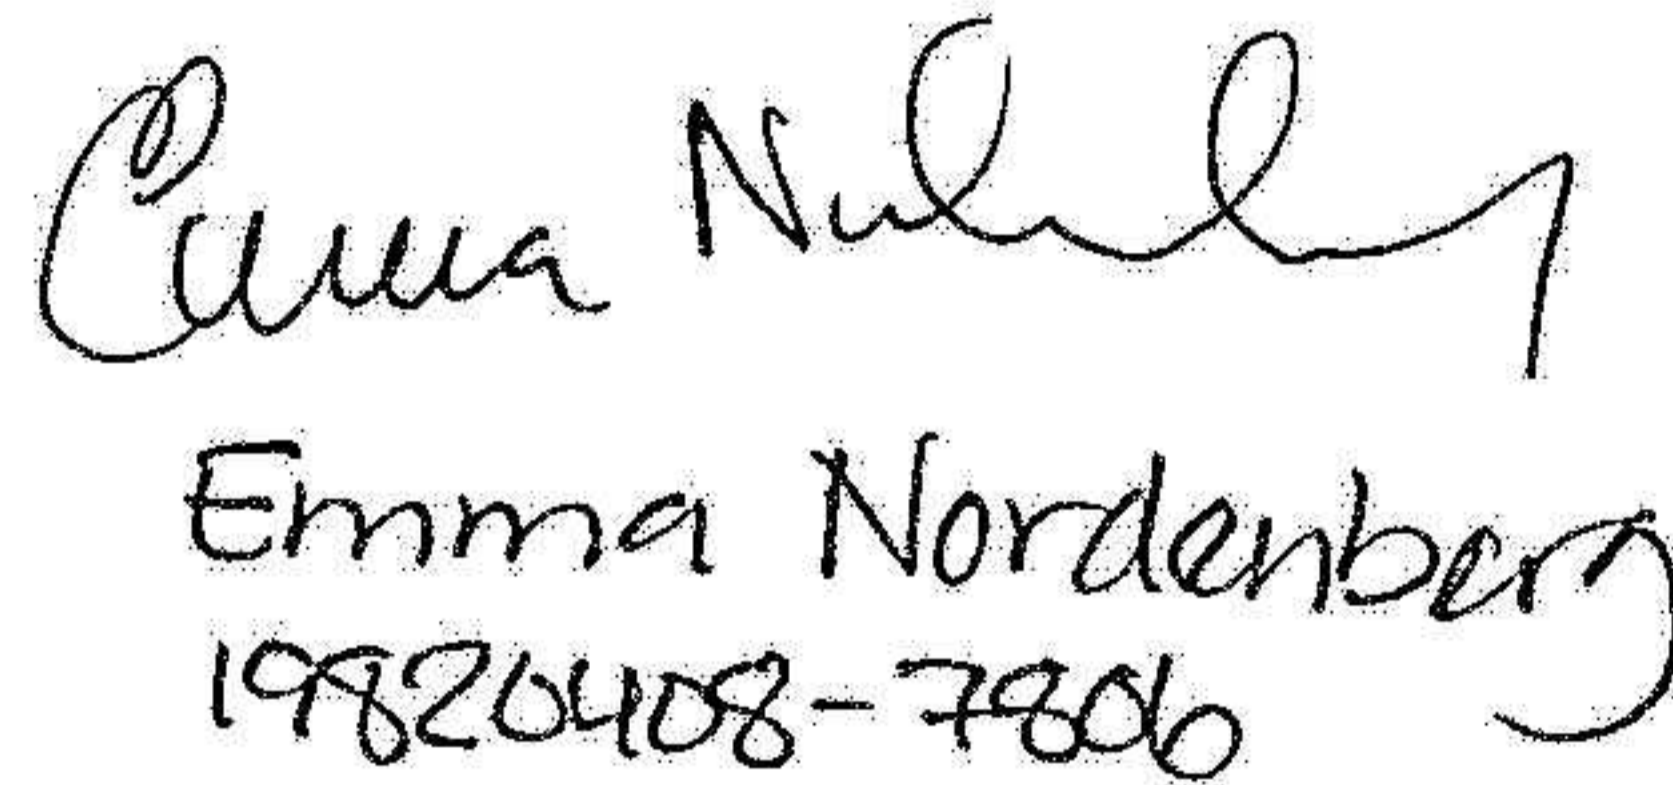 Emma Nordenberg
Emma Nordenberg
19820408-7806